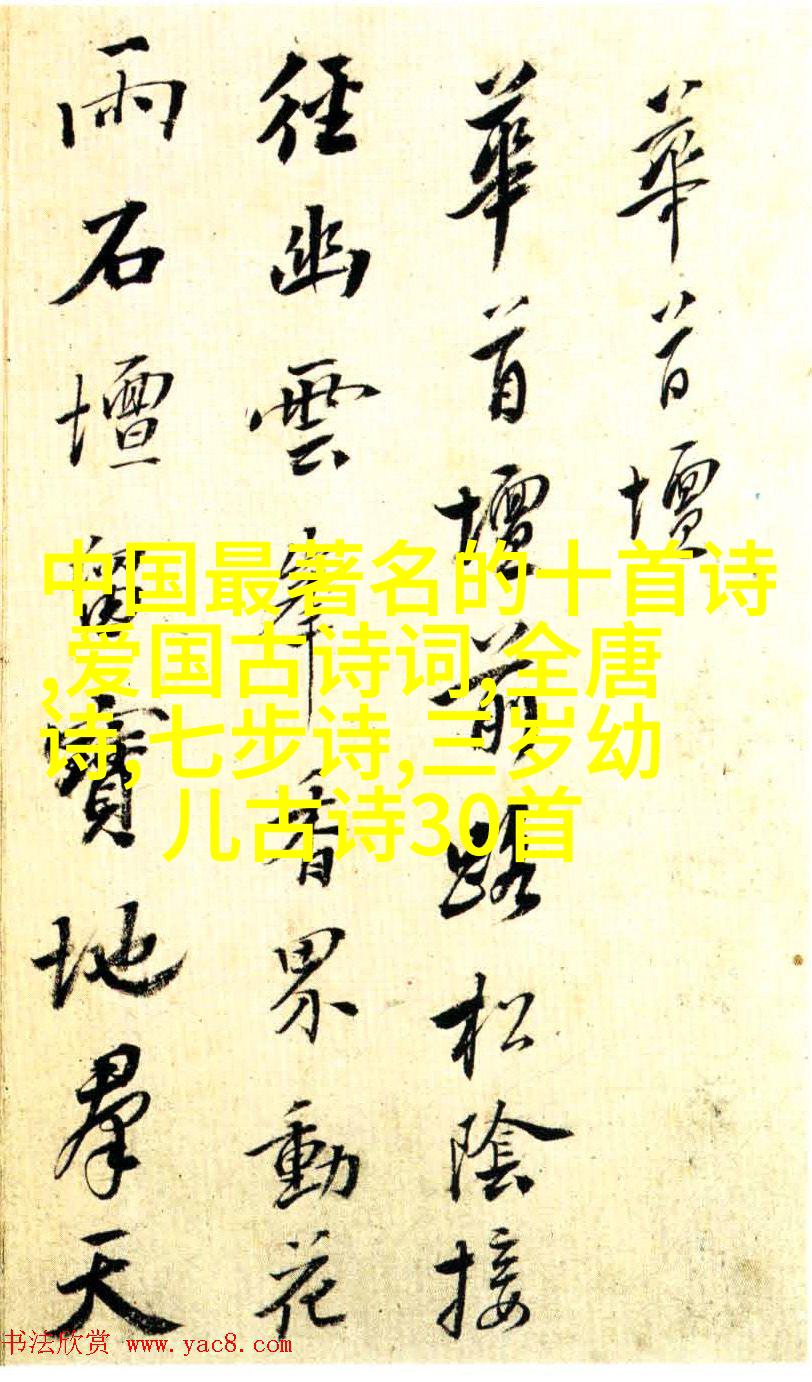 華首壇
華首壇前路松陰接
徑幽雲峯香界動花
雨石壇寶地羣天
中国最著名的十首诗
,爱国古诗词,全唐
诗,七步诗,三岁幼
儿古诗30首
书法欣赏 www.yac8.com